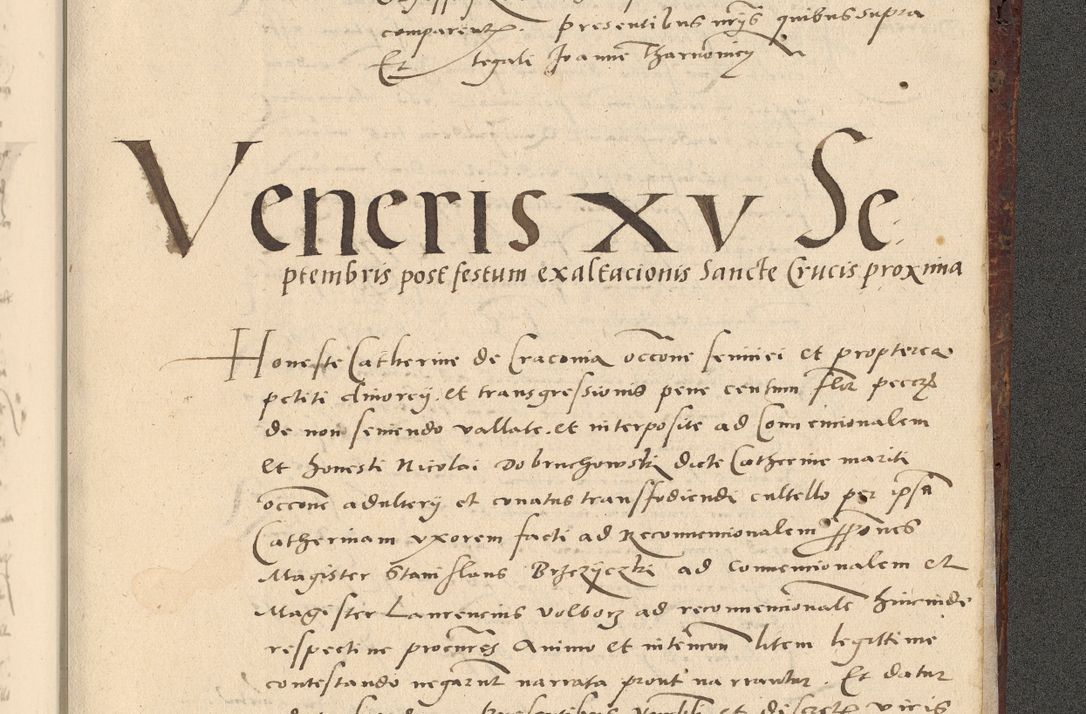 comparent. Presentibus nrys quibus supra
Et legali Joanne Tharnowicz
Veneris XV Se
ptembris post festum exaltacionis Sancte Crucis proxima
Honeste Catherine de Cracovia occone sevicei et propterea
petiti divorcij. et transgressionis pene centum flor pecc
de non seviendo vallate. et interposite ad Convencionalem
et honesti Nicolai Dobruchowski dicte Catherine mariti
occone adulterij et conatus transfodiendi cultello per ipsa
Catherinam vxorem facti ad Reconvencionalem ppones
Magister Stanislaus Brzezyczki ad convencionalem et
Magister Laurencius Volborz ad reconvencionale hincinde
respective procures Animo et intencon litem legittime
contestando negarunt narrata prout narrantur. Et datur